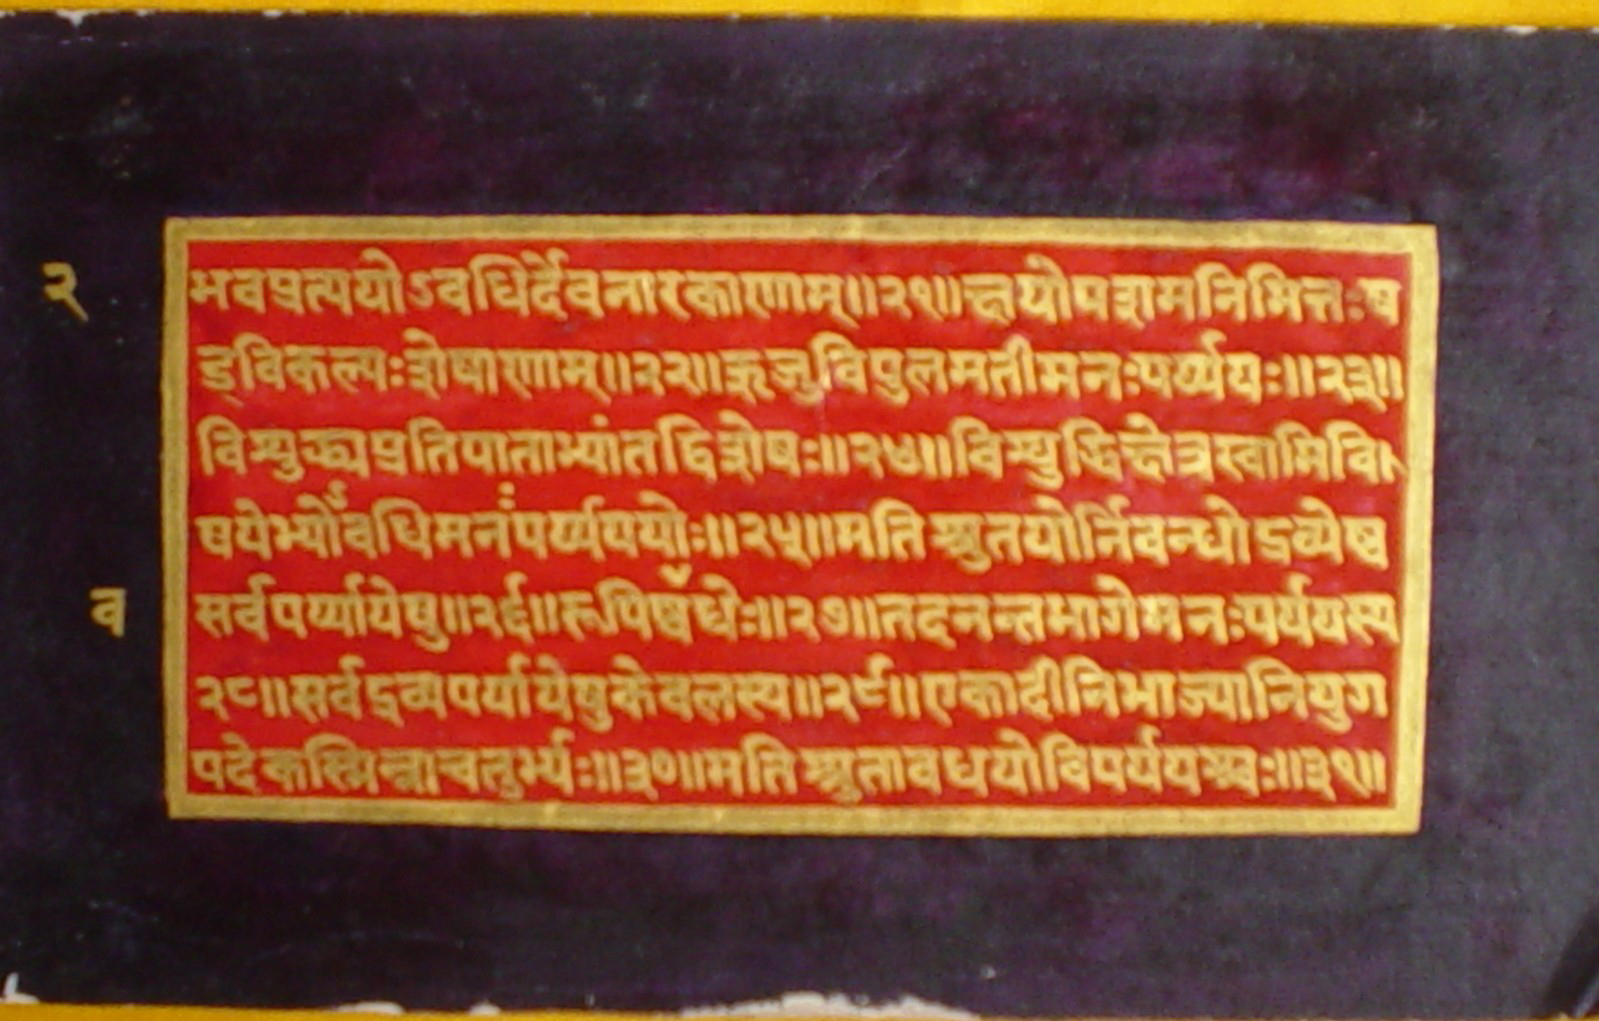 २
भवप्रत्ययोऽवधिर्देवनारकाणाम्॥२१॥क्षयोपशमनिमित्तःष
ड्विकल्पःशेषाणाम्॥२२॥ऋजुविपुलमतीमनःपर्य्ययः॥२३॥
विशुद्ध्यप्रतिपाताभ्यांतद्विशेषः॥२४॥विशुद्धिक्षेत्रस्वामिवि
षयेभ्योँवधिमनंपर्य्यययोः॥२५॥मतिश्रुतयोर्निवन्धोद्रव्येष्व
व
सर्वपर्य्यायेषु॥२६॥रूपिष्वधेः॥२७॥तदनन्तभागेमनःपर्ययस्य
२८॥सर्वद्रव्यपर्यायेषुकेवलस्य॥२९॥एकादीनिभाज्यानियुग
पदेकस्मिन्नाचतुर्भ्यः॥३०॥मतिश्रुतावधयोविपर्ययश्चः॥३१॥